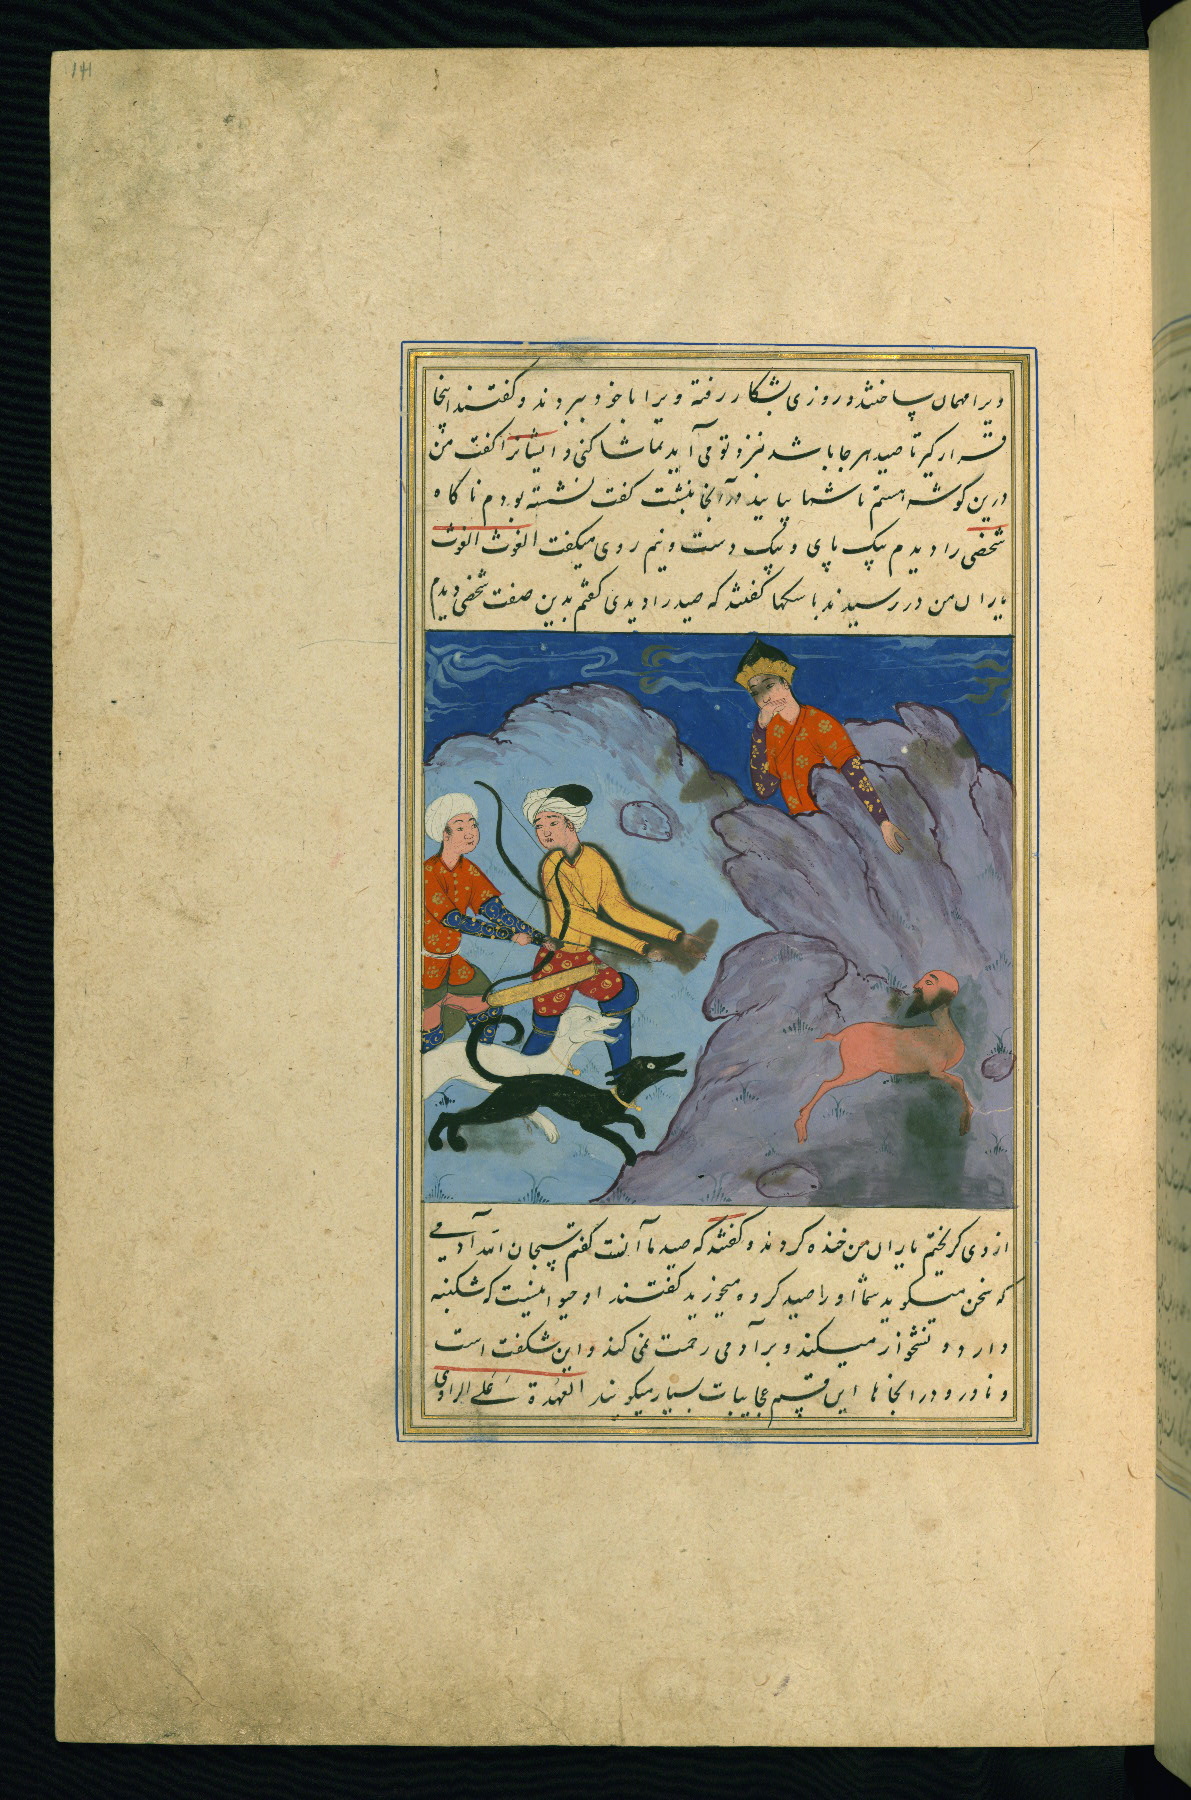 ۱۴۱
ویرا مهمان ساختند و روزی بشکار رفته ویرا با خود ببردند و گفتند اینجا
قرار گیر تا صید هر جا باشد نزد تو می آید تماشا کنی و ایشانرا گفت من
درین گوشه هستم تا شما بیایید در آنجا بنشست گفت نشسته بودم ناگاه
شخصی را دیدم بیک پای و بیک دست و نیم روی میگفت الغوث الغوث
یاران من در رسیدند با سگها گفتند که صید را دیدی گفتم بدین صفت شخصی دیدم
از وی گریختم یاران من خنده کردند و گفتند که صید ما آنست گفتم سبحان الله آدمی
که سخن میگوید شما او را صید کرده میخورید گفتند او حیوانیست که شکنبه
دارد و نشخوار میکند و بر آدمی رحمت نمی کند و این شکفت است
و نادر و در آنجا ها این قسم عجایبات بسیار میگویند العهدة علی الراوی